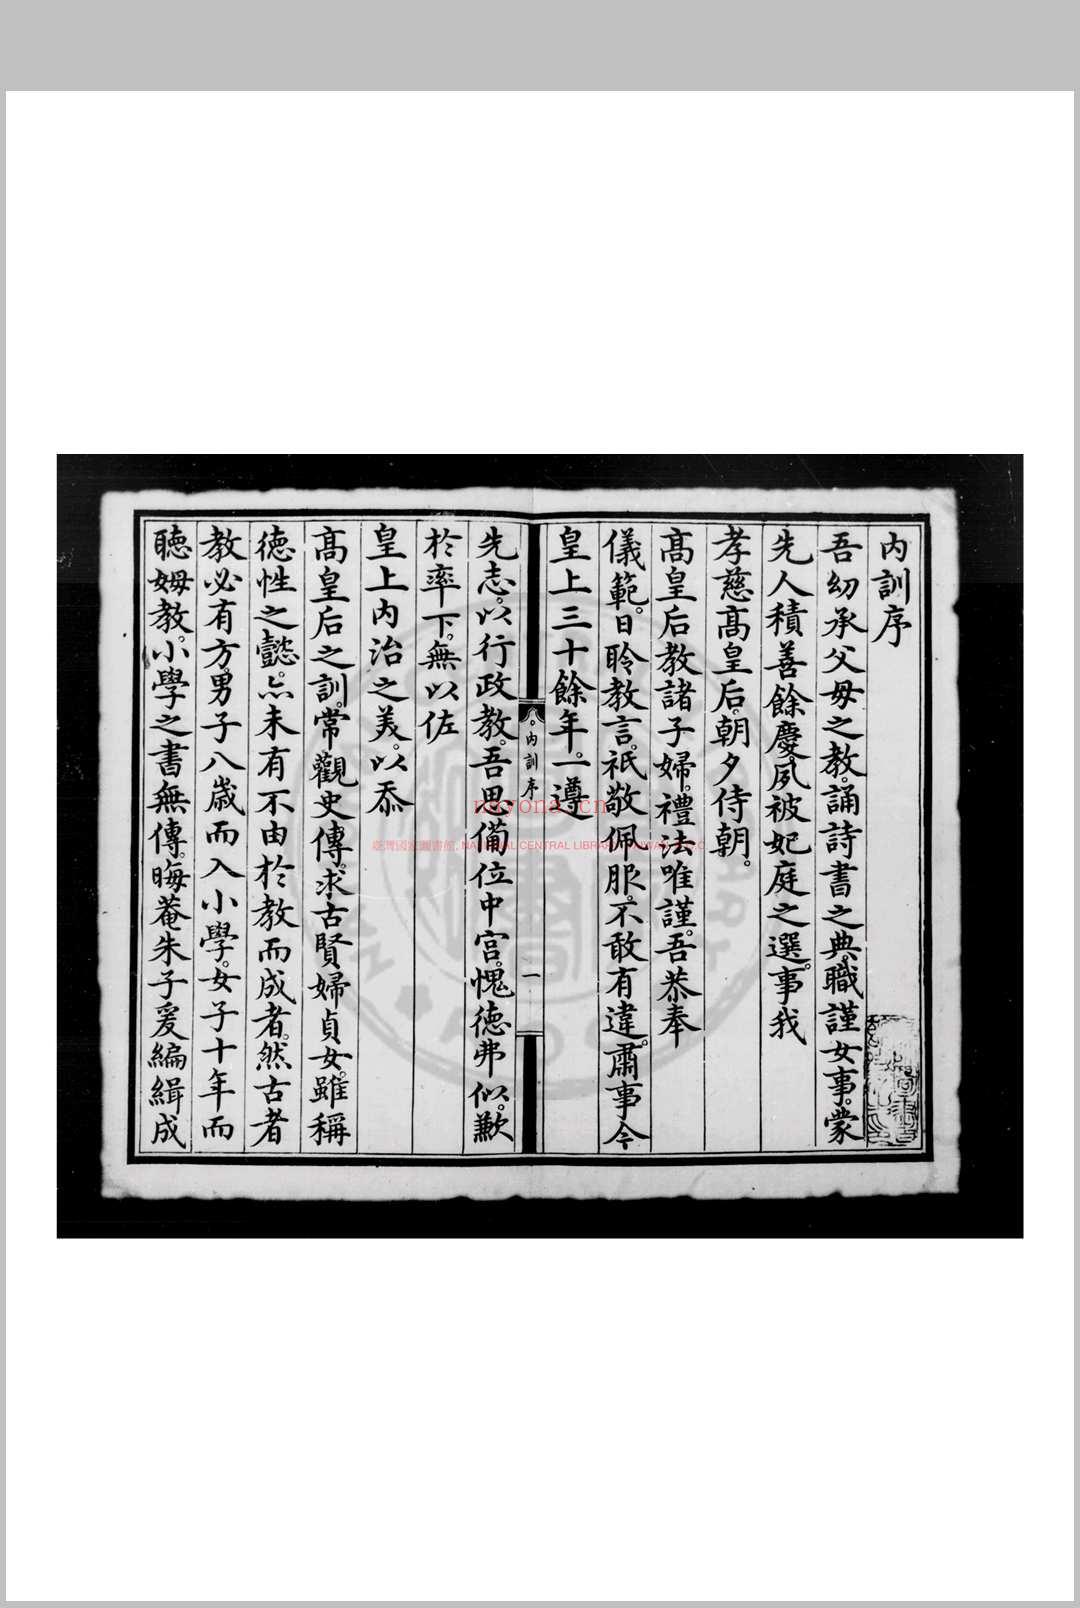 內訓序
吾幼承父母之教。誦詩書之典。職謹女事。蒙
先人積善餘慶。夙被妃庭之選。事我
孝慈高皇后。朝夕侍朝。
高皇后教諸子婦。禮法唯謹。吾恭奉
儀範。日聆教言。祗敬佩服。不敢有違。肅事今
皇上三十餘年。一遵
內訓序
一
先志。以行政教。吾思備位中宮。愧德弗似。歉
於率下。無以佐
皇上內治之美。以忝
高皇后之訓。常觀史傳。求古賢婦貞女。雖稱
德性之懿。亦未有不由於教而成者。然古者
教必有方。男子八歲而入小學。女子十年而
聽姆教。小學之書無傳。晦菴朱子爰編緝成
nayona.cn
臺灣國家圖書館, NATIONAL CENTRAL LIBRARY, TAIWAN, R.O.C